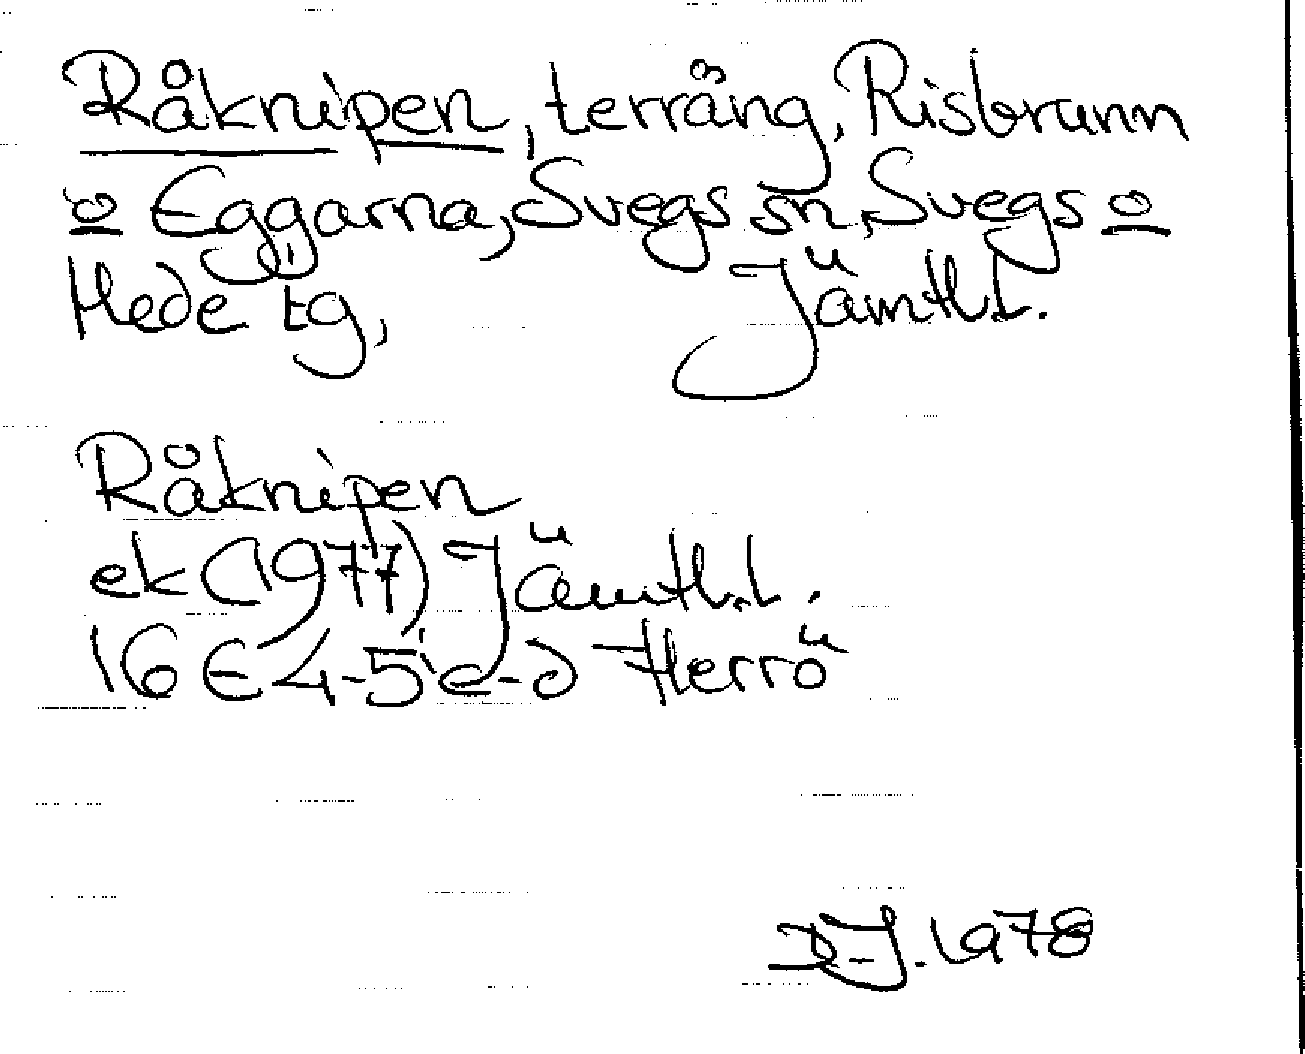 Råknipen, terräng, Risbrunn
o Eggarna, Svegs sn, Svegs o
Hede tg, Jämtl.l.
Råknipen
ek (1977) Jämtl.l.
16 E 4-5 c-d Herrö
1978